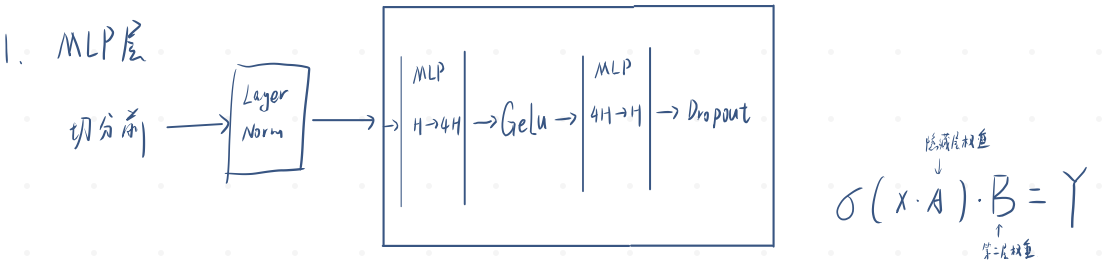 1. MLP层
切分前
Layer
Norm
MLP
H→4H
→GeLu→
MLP
4H→H
→Dropout
隐藏层权重
σ(X·A)·B=Y
第二层权重